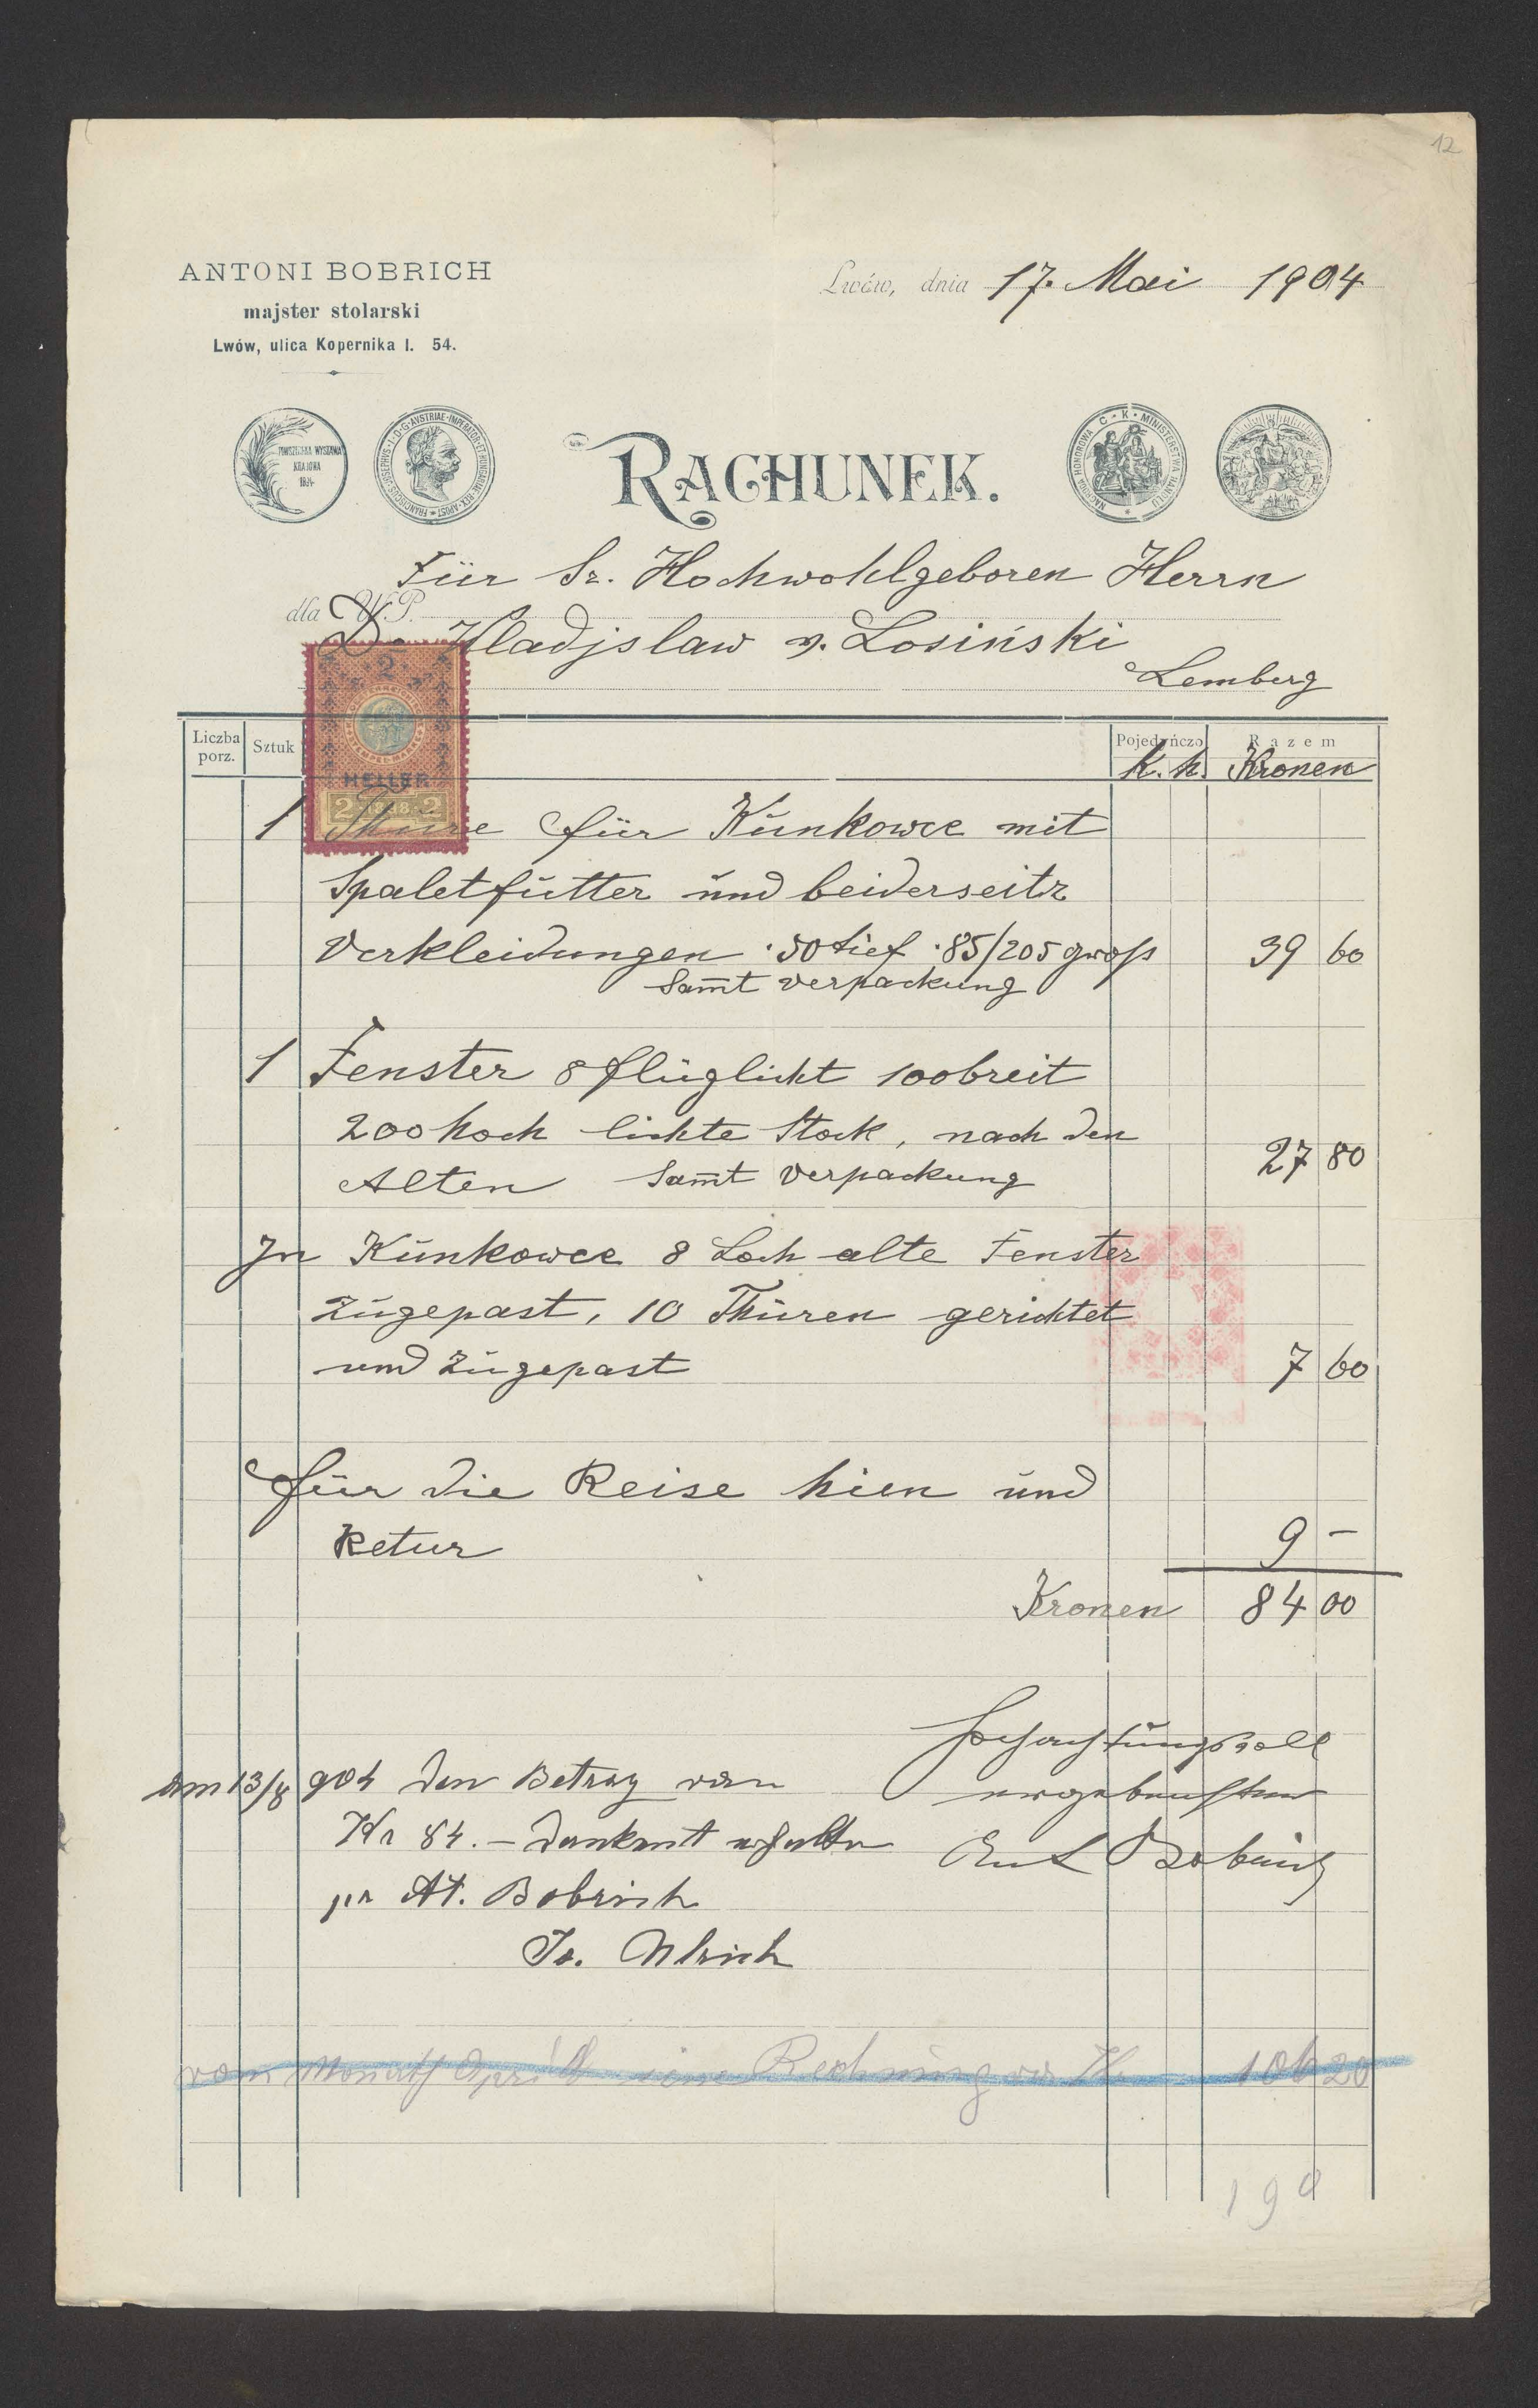 12
ANTONI BOBRICH
majster stolarski
Lwów, ulica Kopernika l. 54.
Lwów, dnia 17. Mai 1904
POWSZECHNA WYSTAWA
KRAJOWA
FRANCISCUS·IOSEPHUS·I·D·G·AVSTRIAE·IMPERATOR·ET·HUNGARIAE·REX·APOST·
RACHUNEK.
NAGRODA HONOROWA C·K·MINISTERSTWA HANDLU
Für Sr. Hochwohlgeboren Herrn
dla W.P.
D. Wladjslaw v. Losiński
Lemberg
2
HELLER
2 1898 2
Liczba porz. Sztuk Pojedyńczo Razem
K. h. Kronen
1 Thüre für Kunkowce mit
Spaletfutter und beiderseitz
Verkleidungen 50 tief 85/205 gross 39 60
Samt Verpackung
1 Fenster 8 flüglicht 100 breit
200 hoch lichte Stock, nach den
Alten Samt Verpackung 27 80
In Kunkowce 8 Loch alte Fenster
zugepast, 10 Thüren gerichtet
und zugepast 7 60
für die Reise hien und
Retur 9 –
Kronen 84 00
Hochachtungsvoll
am 13/8 904 den Betrag von
ergebenster
Kr 84.– dankent erhalten
Ant Bobrich
pr At. Bobrich
Jo. Ulrich
vom Monath April eine Rechnung 106 20
190